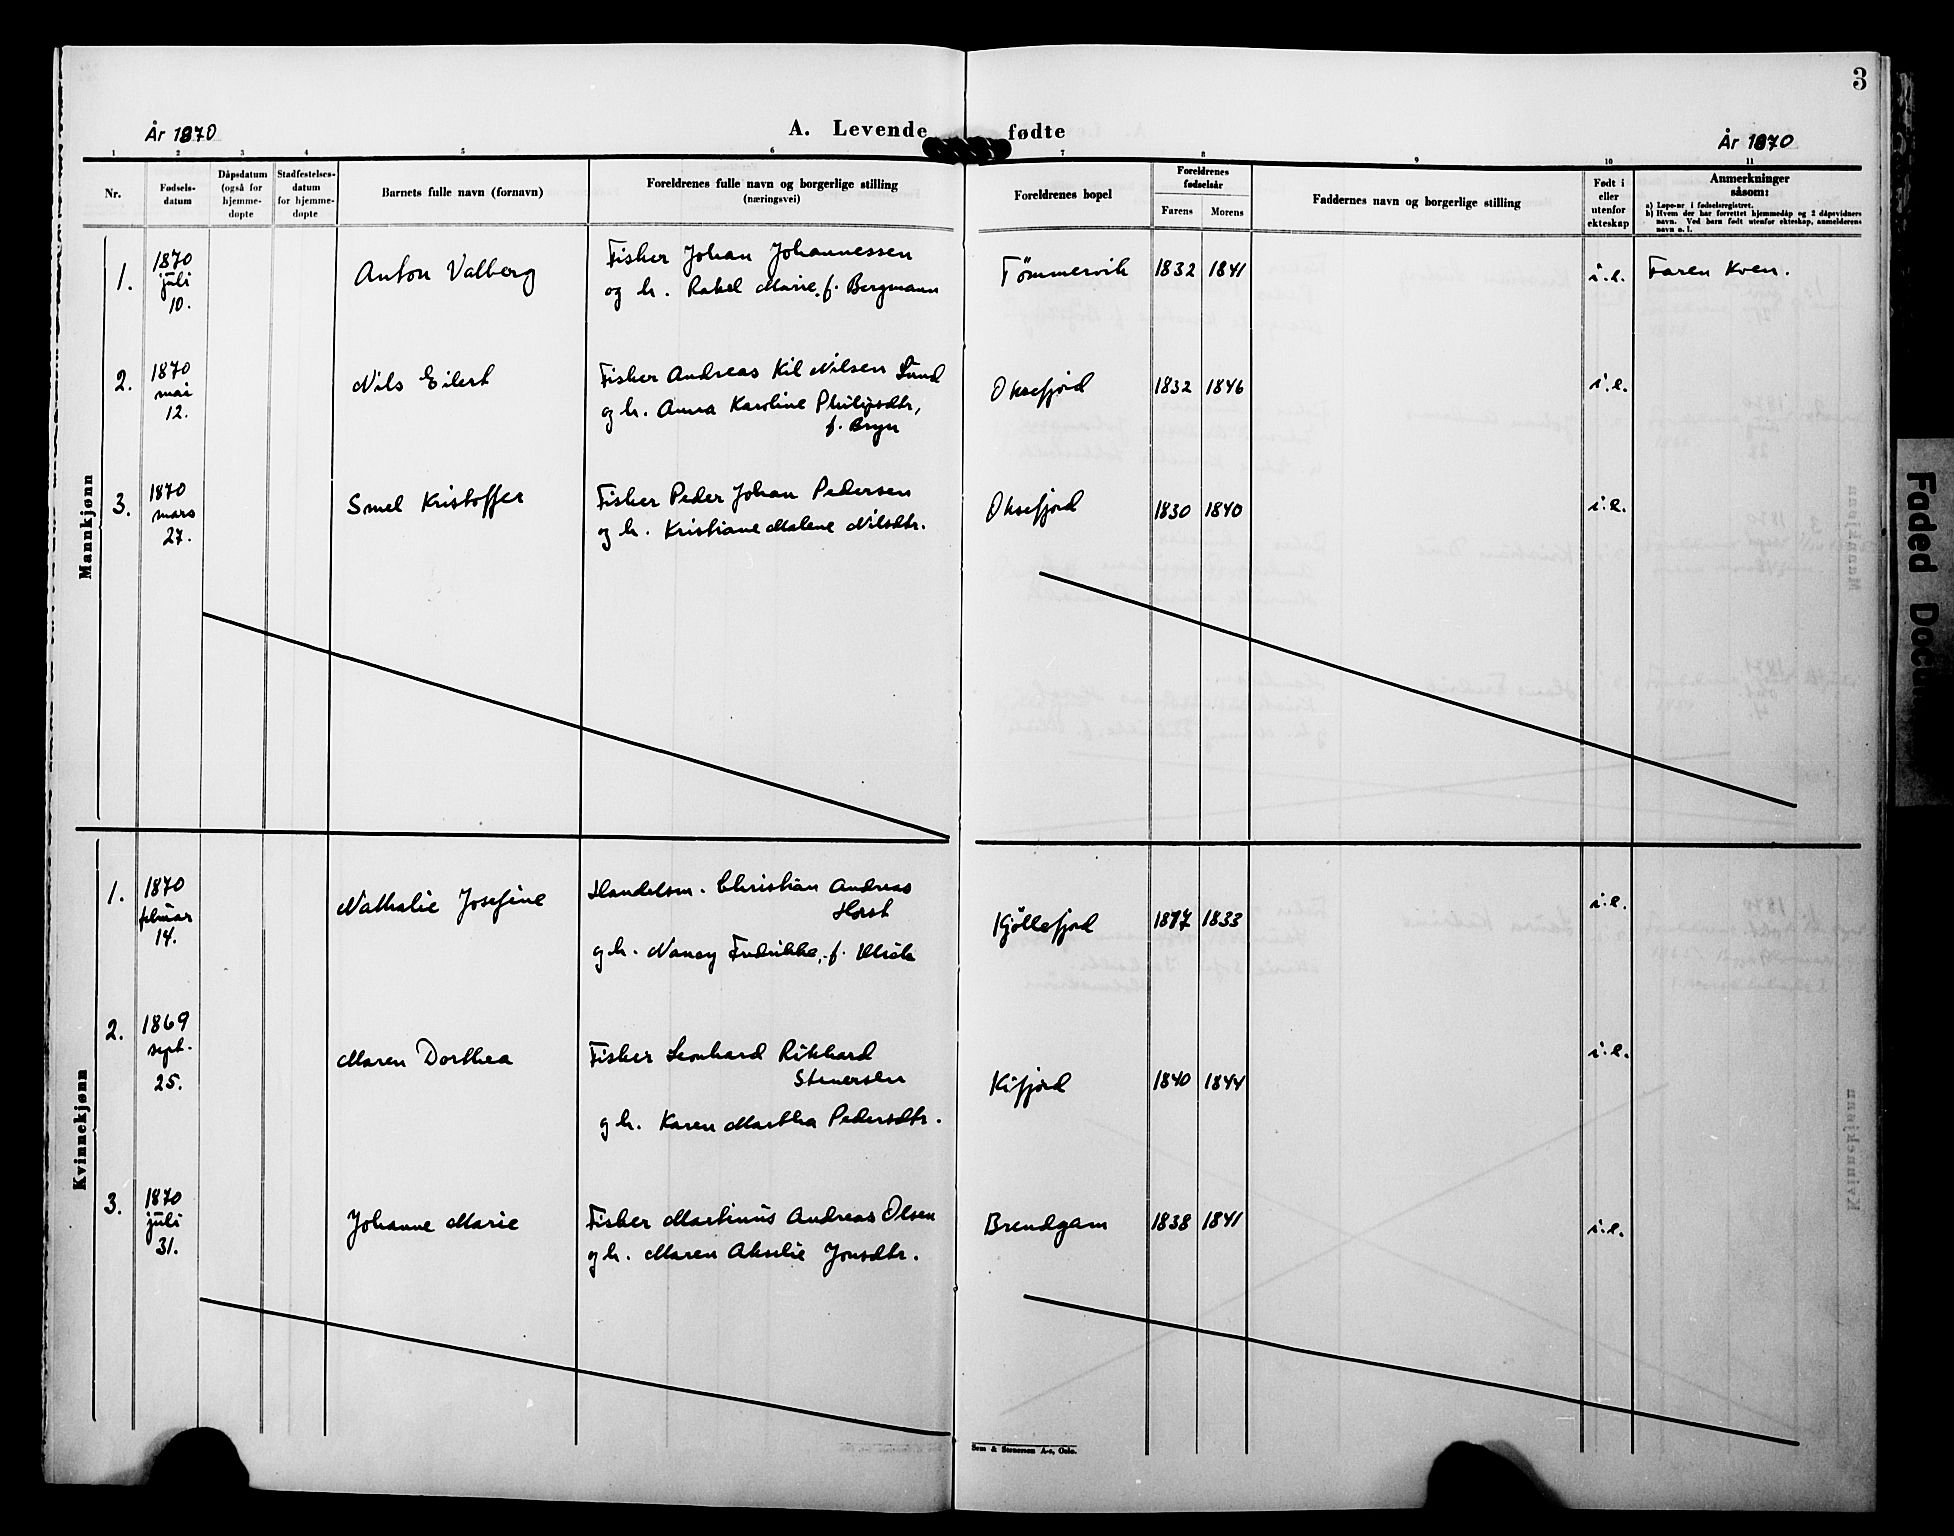 3
År 1870
A. Levende fødte
År 1870
1 2 3 4 5 6 7 8 9 10 11
Nr.
Fødsels-
datum
Dåpsdatum
(også for
hjemme-
døpte
Stadfestelses-
datum
for hjemme-
døpte
Barnets fulle navn (fornavn)
Foreldrenes fulle navn og borgerlige stilling
(næringsvei)
Foreldrenes bopel
Foreldrenes
fødselsår
Farens Morens
Faddernes navn og borgerlige stilling
Født i
eller
utenfor
ekteskap
Anmerkninger
såsom:
a) Løpe-nr i fødselsregistret.
b) Hvem der har forrettet hjemmedåp og 2 dåpsvidners
navn. Ved barn født utenfor ekteskap, anmelderens
navn o. l.
Mannkjønn
1.
1870
juli
10.
Anton Valberg
Fisker Johan Johannessen
og h. Rakel Marie, f. Bergmann
Tømmervik
1832 1841
i.e.
Faren Kven.
2.
1870
mai
12.
Nils Eilert
Fisker Andreas Kil Nilsen Lund
og h. Anna Karoline Philipsdtr,
f. Bryn
Oksefjord
1832 1846
i.e.
3.
1870
mars
27.
Smel Kristoffer
Fisker Peder Johan Pedersen
og h. Kristiane Malene Nilsdtr.
Oksefjord
1830 1840
i.e.
Kvinnekjønn
1.
1870
februar
14.
Nathalie Josefine
Handelsm. Christian Andreas
Horst
og h. Nancy Fredrikke, f. Ulrich
Kjøllefjord
1817 1833
i.e.
2.
1869
sept.
25.
Maren Dorthea
Fisker Leonhard Rikhard
Stenersen
og h. Karen Martha Pedersdtr.
Kifjord
1840 1844
i.e.
3.
1870
juli
31.
Johanne Marie
Fisker Martinus Andreas Olsen
og h. Maren Akselie Jonsdtr.
Brendgam
1838 1841
i.e.
Sem & Stenersen A-s, Oslo.
Faded Docu